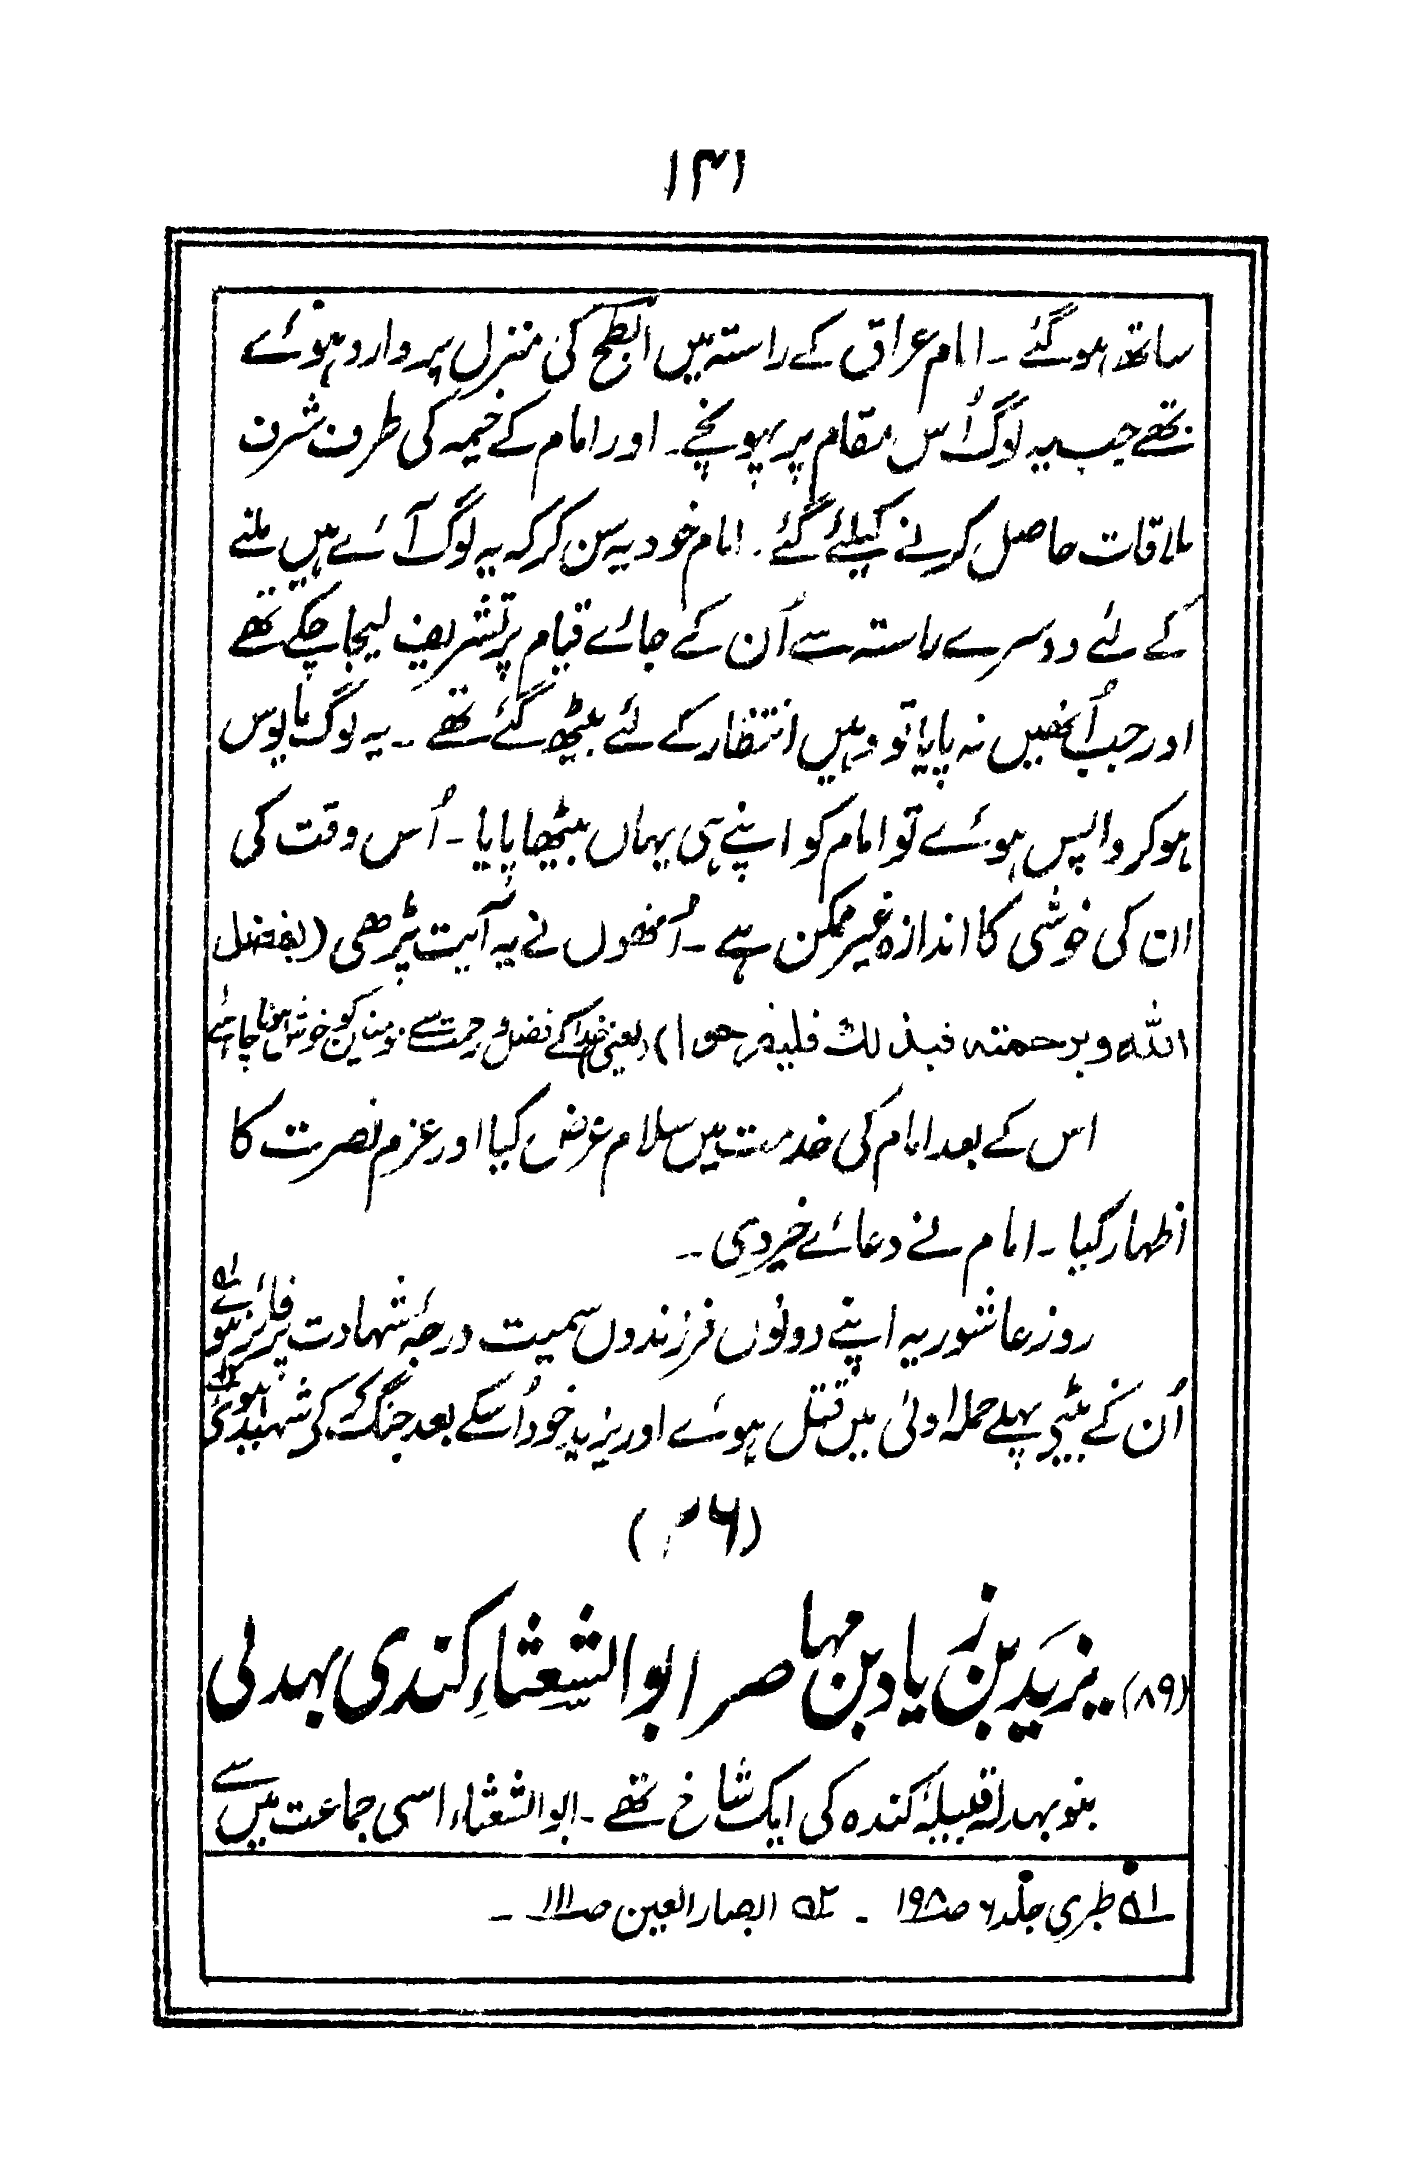 ۱۴۱
ساتھ ہو گئے ۔ امام عراق کے راستہ میں ابطح کی منزل پر وارد ہوئے
تھے جب یہ لوگ اُس مقام پر پہونچے ۔ اور امام کے خیمہ کی طرف شرف
ملاقات حاصل کرنے کیلئے گئے ۔ امام خود یہ سن کر کہ یہ لوگ آئے ہیں ملنے
کے لئے دوسرے راستہ سے اُن کے جائے قیام پر تشریف لیجا چکے تھے
اور جب اُنھیں نہ پایا تو وہیں انتظار کے لئے بیٹھ گئے تھے ۔ یہ لوگ مایوس
ہو کر واپس ہوئے تو امام کو اپنے ہی یہاں بیٹھا پایا ۔ اُس وقت کی
ان کی خوشی کا اندازہ غیر ممکن ہے ۔ اُنھوں نے یہ آیت پڑھی (بفضل
اللہ وبرحمتہ فبذلک فلیفرحوا) (یعنی خدا کے فضل و رحمت سے مومنین کو خوش ہونا چاہئے
اس کے بعد امام کی خدمت میں سلام عرض کیا اور عزم نصرت کا
اظہار کیا ۔ امام نے دعائے خیر دی ۔
روز عاشور یہ اپنے دونوں فرزندوں سمیت درجۂ شہادت پر فائز ہوئے ۱؎
اُن کے بیٹے پہلے حملہ اولیٰ میں قتل ہوئے اور یزید خود اُسکے بعد جنگ کر کے شہید ہوئے ۲؎
(۴۶)
(۸۹) یزید بن زیاد بن مہاصر ابوالشعثاء کندی بہدلی
بنو بہدلہ قبیلۂ کندہ کی ایک شاخ تھے ۔ ابوالشعثاء اسی جماعت میں سے
۱؎ طبری جلد ۶ صـ ۱۹۸ ۔ ۲؎ ابصار العین صـ ۱۱۱ ۔